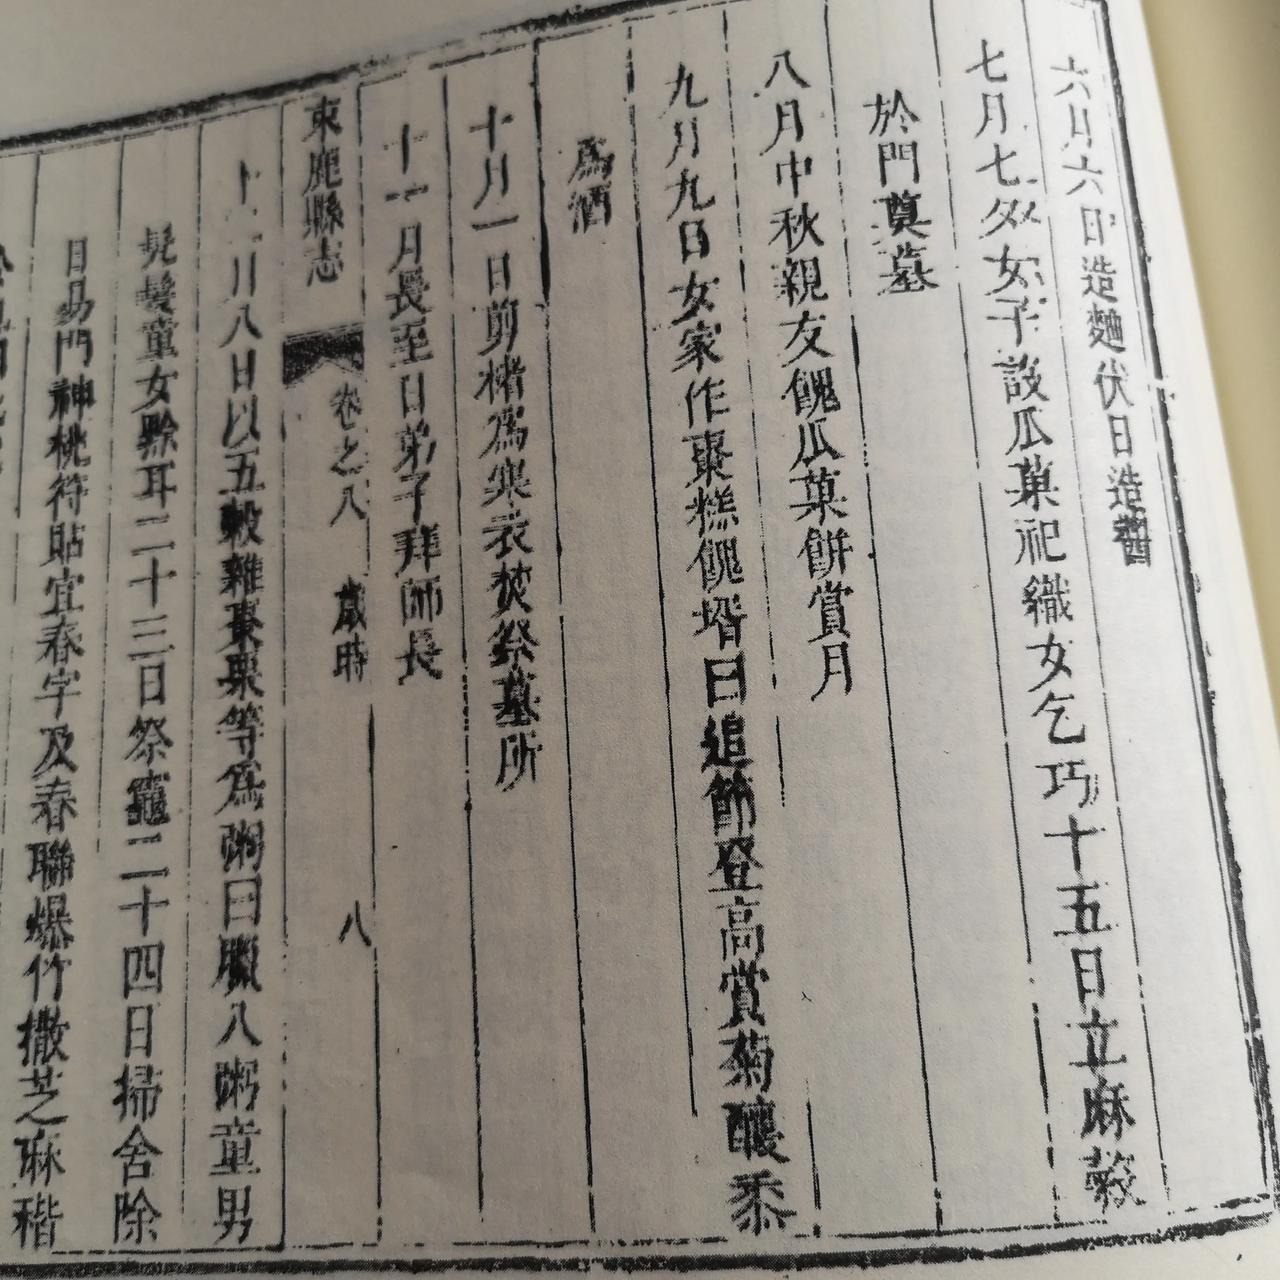 六月六日造麯伏日造醬
七月七夕女子設瓜菓祀織女乞巧十五日立麻穀
於門奠墓
八月中秋親友餽瓜菓餅賞月
九月九日女家作棗糕餽壻曰追節登高賞菊釀黍
爲酒
十月一日剪楮爲寒衣焚祭墓所
十一月長至日弟子拜師長
束鹿縣志
卷之八
歲時
八
十二月八日以五穀雜棗栗等爲粥曰臘八粥童男
髠髮童女黥耳二十三日祭竈二十四日掃舍除
日易門神桃符貼宜春字及春聯爆竹撒芝麻稭